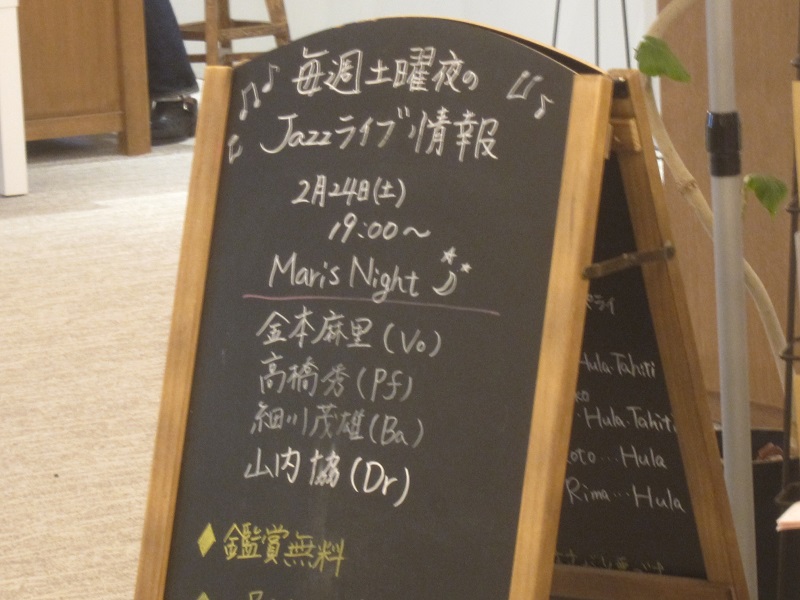 毎週土曜夜の
Jazzライブ情報
2月24日(土)
19:00～
Mari's Night
金本麻里(Vo)
高橋秀(Pf)
細川茂雄(Ba)
山内協(Dr)
◆鑑賞無料
Hula・Tahiti
Hula・Tahiti
Hula
Rima…Hula